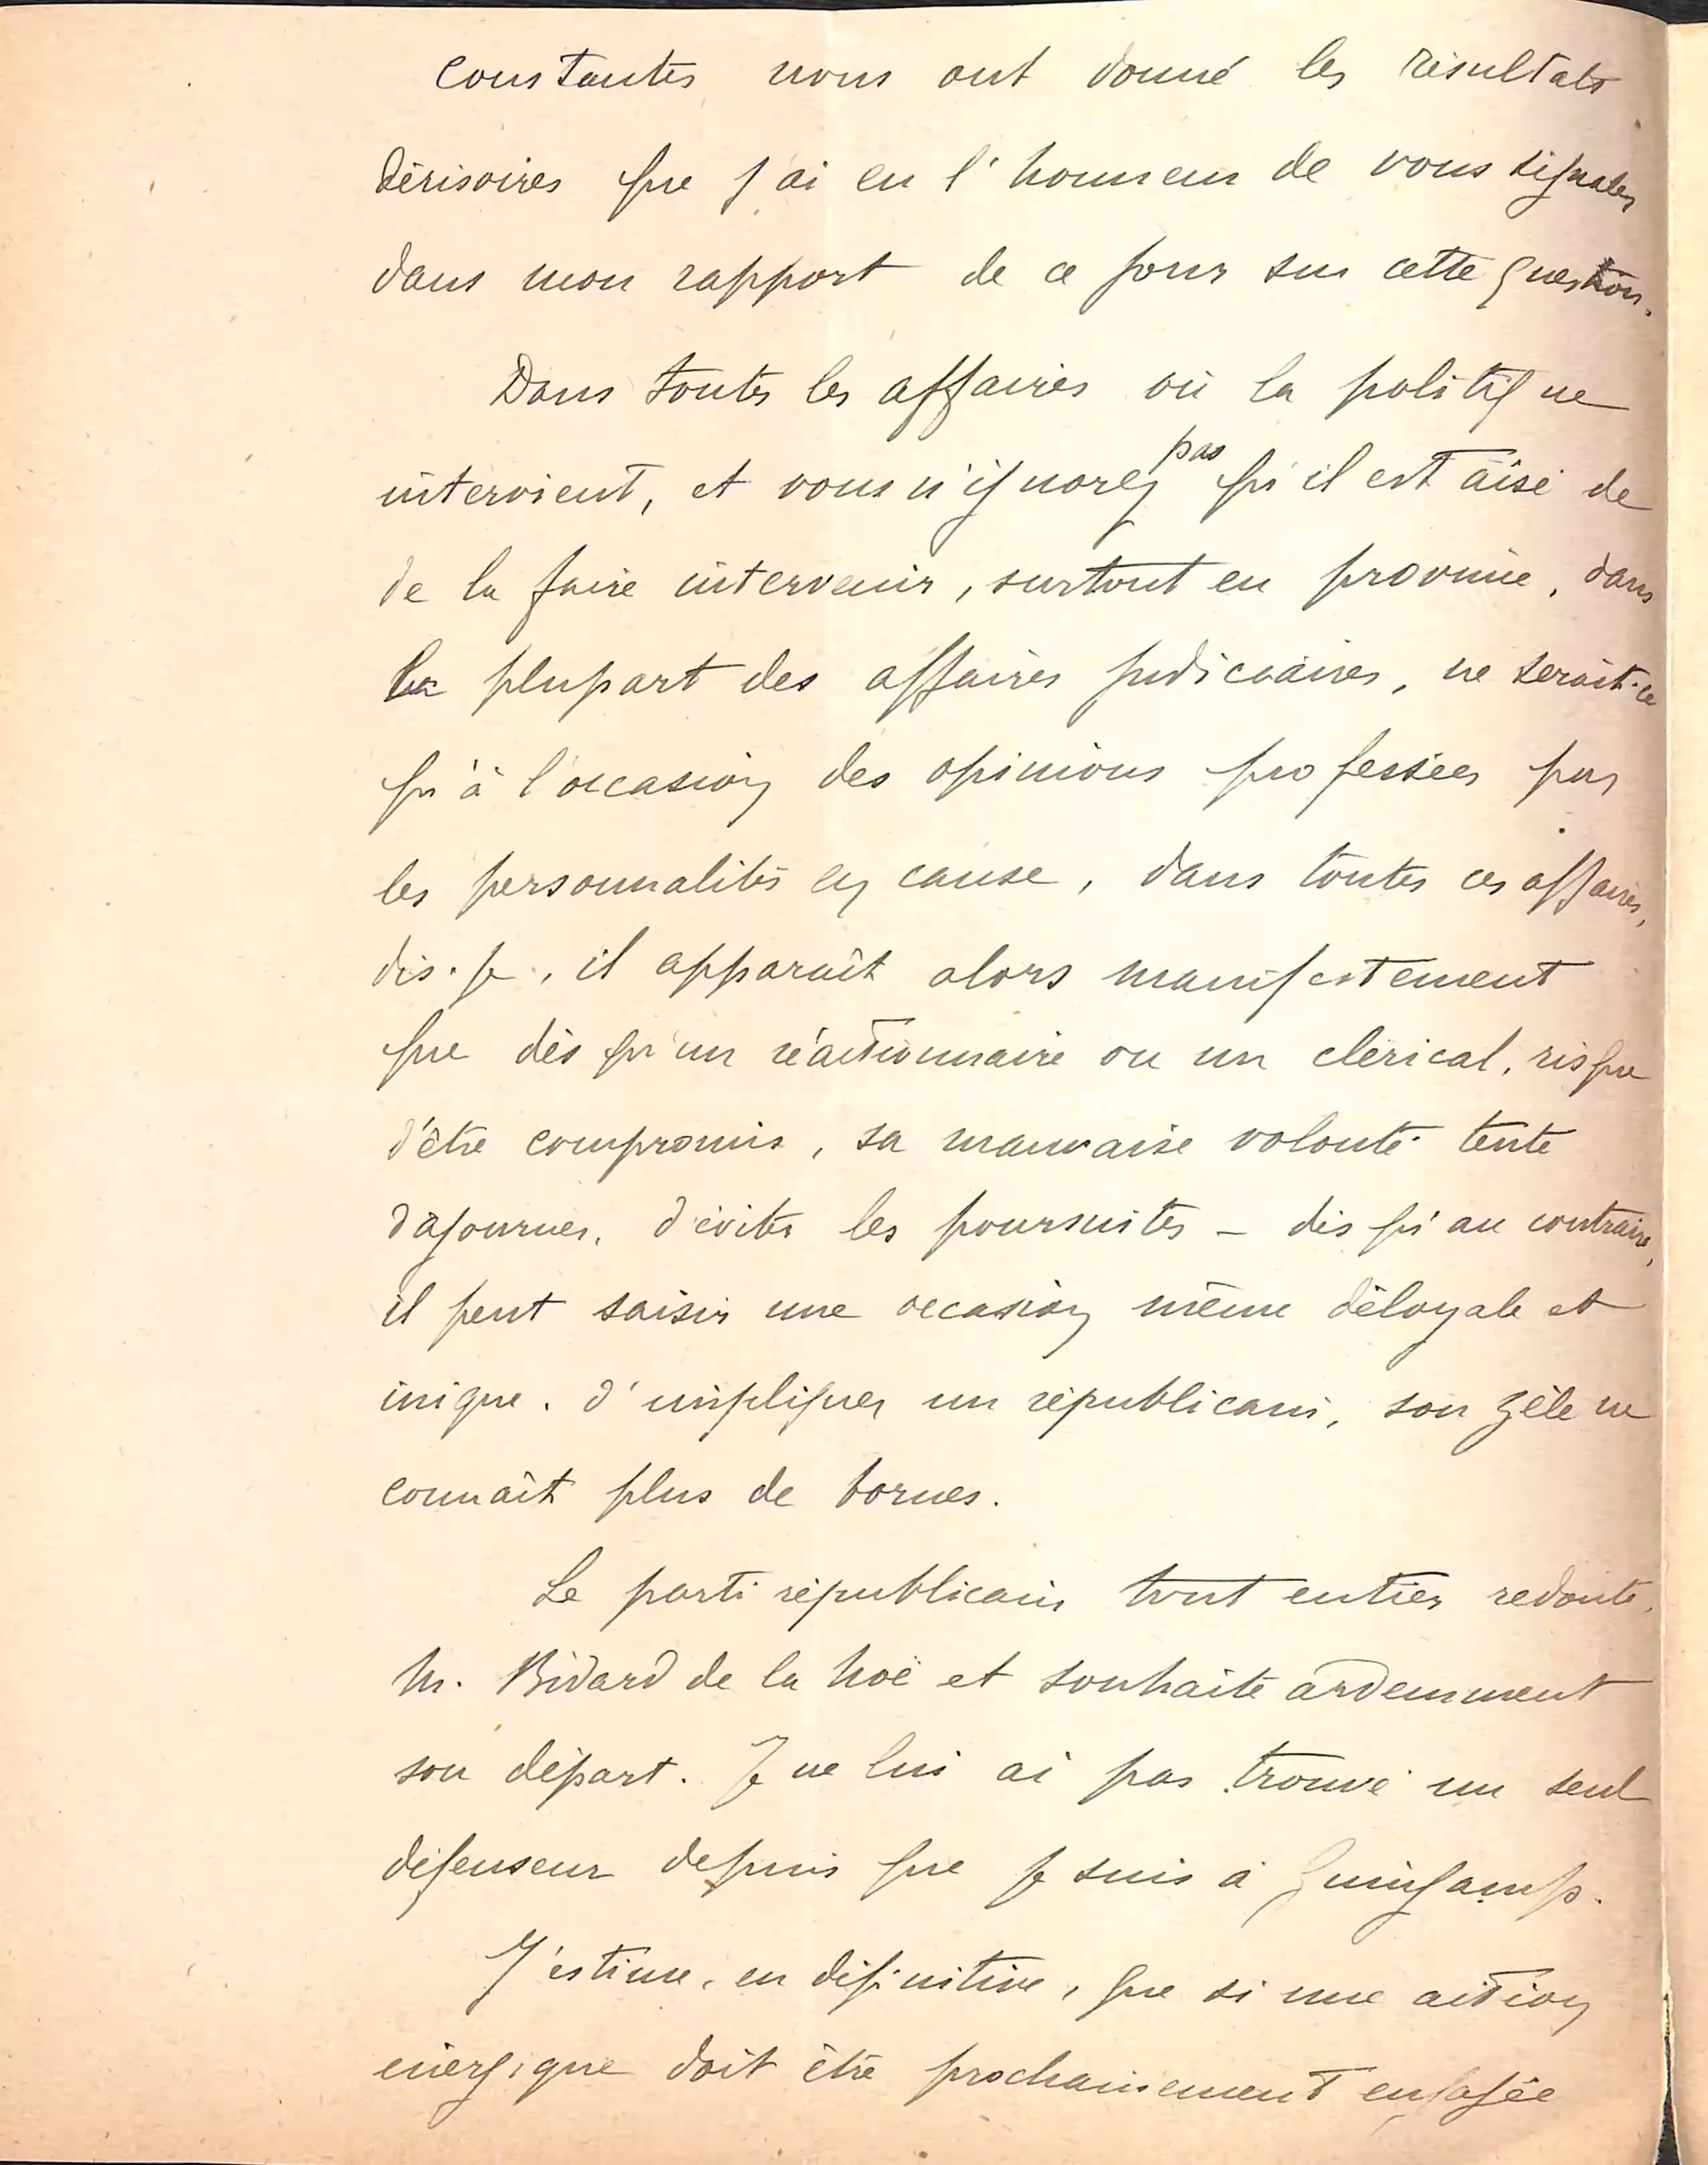 constantes nous ont donné les résultats
dérisoires que j'ai eu l'honneur de vous signaler
dans mon rapport de ce jour sur cette question.
Dans toutes les affaires où la politique
intervient, et vous n'ignorez pas qu'il est aisé de
de la faire intervenir, surtout en province, dans
la plupart des affaires judiciaires, ne serait-ce
qu'à l'occasion des opinions professées par
les personnalités en cause, dans toutes ces affaires,
dis-je, il apparaît alors manifestement
que dès qu'un réactionnaire ou un clérical, risque
d'être compromis, sa mauvaise volonté tente
d'ajourner, d'éviter les poursuites - dès qu'au contraire,
il peut saisir une occasion même déloyale et
inique, d'impliquer un républicain, son zèle ne
connaît plus de bornes.
Le parti républicain tout entier redoute
M. Bidard de la Noë et souhaite ardemment
son départ. Je ne lui ai pas trouvé un seul
défenseur depuis que je suis à Guingamp.
J'estime, en définitive, que si une action
énergique doit être prochainement engagée